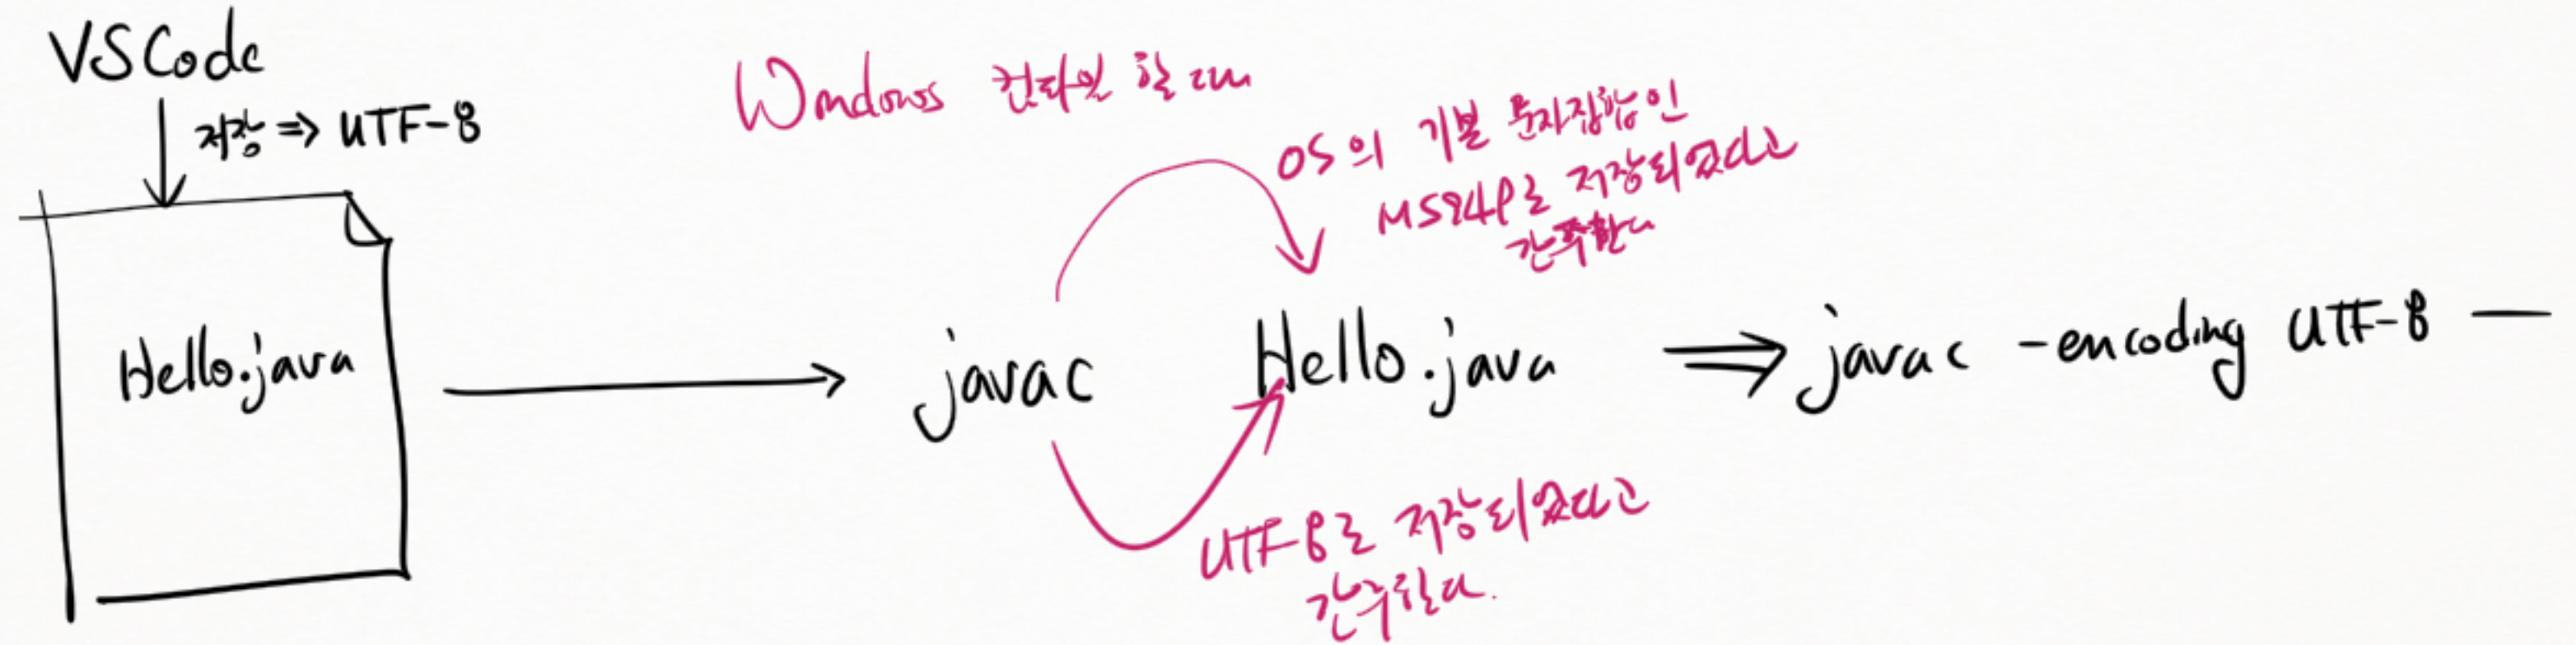 VSCode
저장 ⇒ UTF-8
Hello.java
Windows 컴파일 할 때
OS의 기본 문자집합인
MS949로 저장되었다고
간주한다
javac Hello.java ⇒ javac -encoding UTF-8 —
UTF-8로 저장되었다고
간주한다.